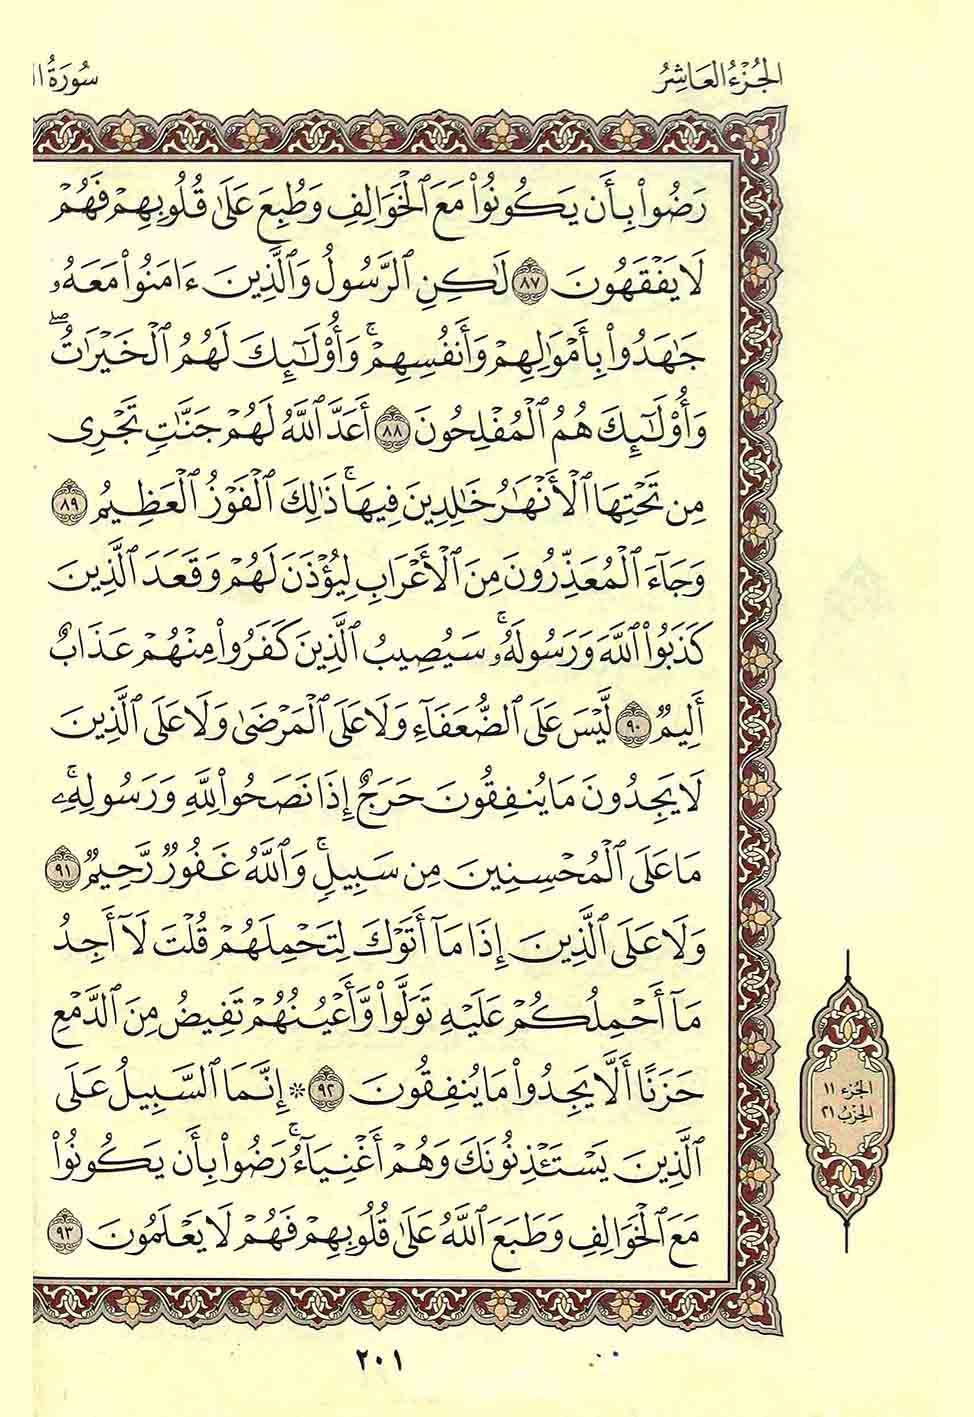 الجُزْءُ العَاشِرُ
سُورَةُ ا
رَضُوا۟ بِأَن يَكُونُوا۟ مَعَ ٱلْخَوَالِفِ وَطُبِعَ عَلَىٰ قُلُوبِهِمْ فَهُمْ
لَا يَفْقَهُونَ ٨٧ لَٰكِنِ ٱلرَّسُولُ وَٱلَّذِينَ ءَامَنُوا۟ مَعَهُۥ
جَٰهَدُوا۟ بِأَمْوَٰلِهِمْ وَأَنفُسِهِمْ ۚ وَأُو۟لَٰٓئِكَ لَهُمُ ٱلْخَيْرَٰتُ ۖ
وَأُو۟لَٰٓئِكَ هُمُ ٱلْمُفْلِحُونَ ٨٨ أَعَدَّ ٱللَّهُ لَهُمْ جَنَّٰتٍ تَجْرِى
مِن تَحْتِهَا ٱلْأَنْهَٰرُ خَٰلِدِينَ فِيهَا ۚ ذَٰلِكَ ٱلْفَوْزُ ٱلْعَظِيمُ ٨٩
وَجَآءَ ٱلْمُعَذِّرُونَ مِنَ ٱلْأَعْرَابِ لِيُؤْذَنَ لَهُمْ وَقَعَدَ ٱلَّذِينَ
كَذَبُوا۟ ٱللَّهَ وَرَسُولَهُۥ ۚ سَيُصِيبُ ٱلَّذِينَ كَفَرُوا۟ مِنْهُمْ عَذَابٌ
أَلِيمٌ ٩٠ لَّيْسَ عَلَى ٱلضُّعَفَآءِ وَلَا عَلَى ٱلْمَرْضَىٰ وَلَا عَلَى ٱلَّذِينَ
لَا يَجِدُونَ مَا يُنفِقُونَ حَرَجٌ إِذَا نَصَحُوا۟ لِلَّهِ وَرَسُولِهِۦ ۚ
مَا عَلَى ٱلْمُحْسِنِينَ مِن سَبِيلٍ ۚ وَٱللَّهُ غَفُورٌ رَّحِيمٌ ٩١
وَلَا عَلَى ٱلَّذِينَ إِذَا مَآ أَتَوْكَ لِتَحْمِلَهُمْ قُلْتَ لَآ أَجِدُ
مَآ أَحْمِلُكُمْ عَلَيْهِ تَوَلَّوا۟ وَّأَعْيُنُهُمْ تَفِيضُ مِنَ ٱلدَّمْعِ
حَزَنًا أَلَّا يَجِدُوا۟ مَا يُنفِقُونَ ٩٢ ۞ إِنَّمَا ٱلسَّبِيلُ عَلَى
ٱلَّذِينَ يَسْتَـْٔذِنُونَكَ وَهُمْ أَغْنِيَآءُ ۚ رَضُوا۟ بِأَن يَكُونُوا۟
مَعَ ٱلْخَوَالِفِ وَطَبَعَ ٱللَّهُ عَلَىٰ قُلُوبِهِمْ فَهُمْ لَا يَعْلَمُونَ ٩٣
الجُزء ١١
الحِزبُ ٢١
٢٠١